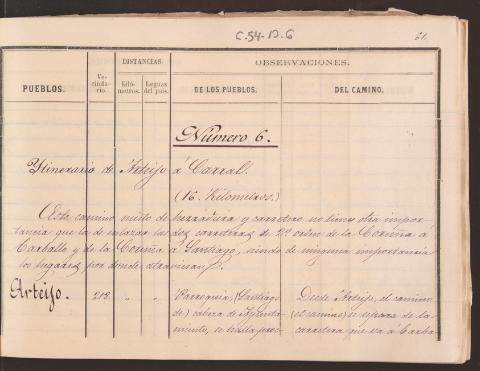 C.54-D.6
61.
DISTANCIAS.
OBSERVACIONES.
PUEBLOS.
Ve-
cinda-
rio.
Kiló-
metros.
Leguas
del país.
DE LOS PUEBLOS.
DEL CAMINO.
Número 6.
Ytinerario de Arteijo á Carral.
(16. Kilometros.)
Este camino misto de herradura y carretero no tiene otra impor-
tancia que la de enlazar las dos carreteras de 2º orden de la Coruña á
Carballo y de la Coruña á Santiago, siendo de ninguna importancia
los lugares por donde atraviesan.
Arteijo.
218.
"
"
Parroquia, (Santiago
de) cabeza de Ayunta-
miento, se halla
Desde Arteijo, el camino
(el camino) se separa de la
carretera que va á Carba